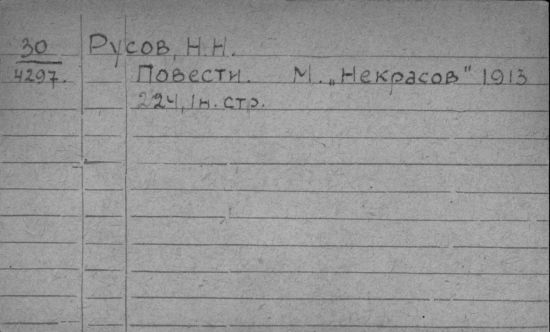 30 Русов, Н.Н.
4297. Повести. М. „Некрасов" 1913
224, 1н. стр.